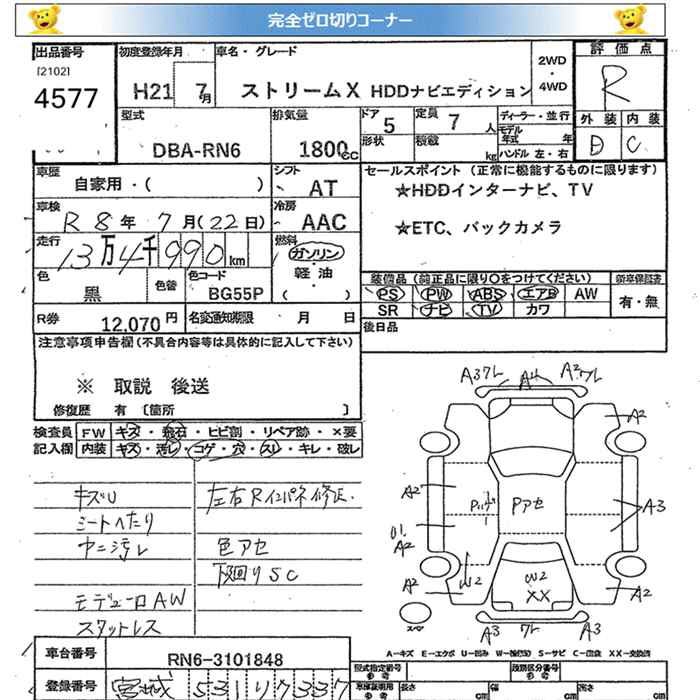 完全ゼロ切りコーナー
出品番号
[2102]
4577
初度登録年月
H21 7月
車名・グレード
ストリームX HDDナビエディション
2WD
・
4WD
評価点
R
外装 内装
D C
型式
DBA-RN6
排気量
1800cc
ドア
5
定員
7人
形状
積載
kg
ディーラー・並行
モデル年式 年
ハンドル 左・右
車歴
自家用・( )
シフト
AT
車検
R 8年 7月(22日)
冷房
AAC
走行
13万4千990km
燃料
ガソリン
軽油
( )
色
黒
色替
色コード
BG55P
R券
12,070円
名変通知期限 月 日
セールスポイント (正常に機能するものに限ります)
☆HDDインターナビ、TV
☆ETC、バックカメラ
装備品 (純正品に限り○をつけてください)
新車保証書
PS PW ABS エアB AW
SR ナビ TV カワ
有・無
後日品
注意事項申告欄(不具合内容等は具体的に記入して下さい)
※ 取説 後送
修復歴 有 〔箇所 〕
検査員 FW キズ・飛石・ヒビ割・リペア跡・×要
記入欄 内装 キズ・汚レ・コゲ・穴・スレ・キレ・破レ
キズU
シートへたり
ヤニ汚レ
モデューロAW
スタットレス
左右Rインパネ修正.
色アセ
下廻りSC
A3ワレ A4 A2ワレ
A2 A2
A2 Pアセ A3
A2
A2 W2 W2 XX A2
スペア
A3 ワレ A3
A-キズ E-エクボ U-凹み W-補(跡) S-サビ C-腐食 XX-交換済
車台番号
RN6-3101848
登録番号
宮城 531 リ 7337
型式指定番号
参考
類別区分番号
参考
車検証明用
参考
長さ cm
幅 cm
高さ cm